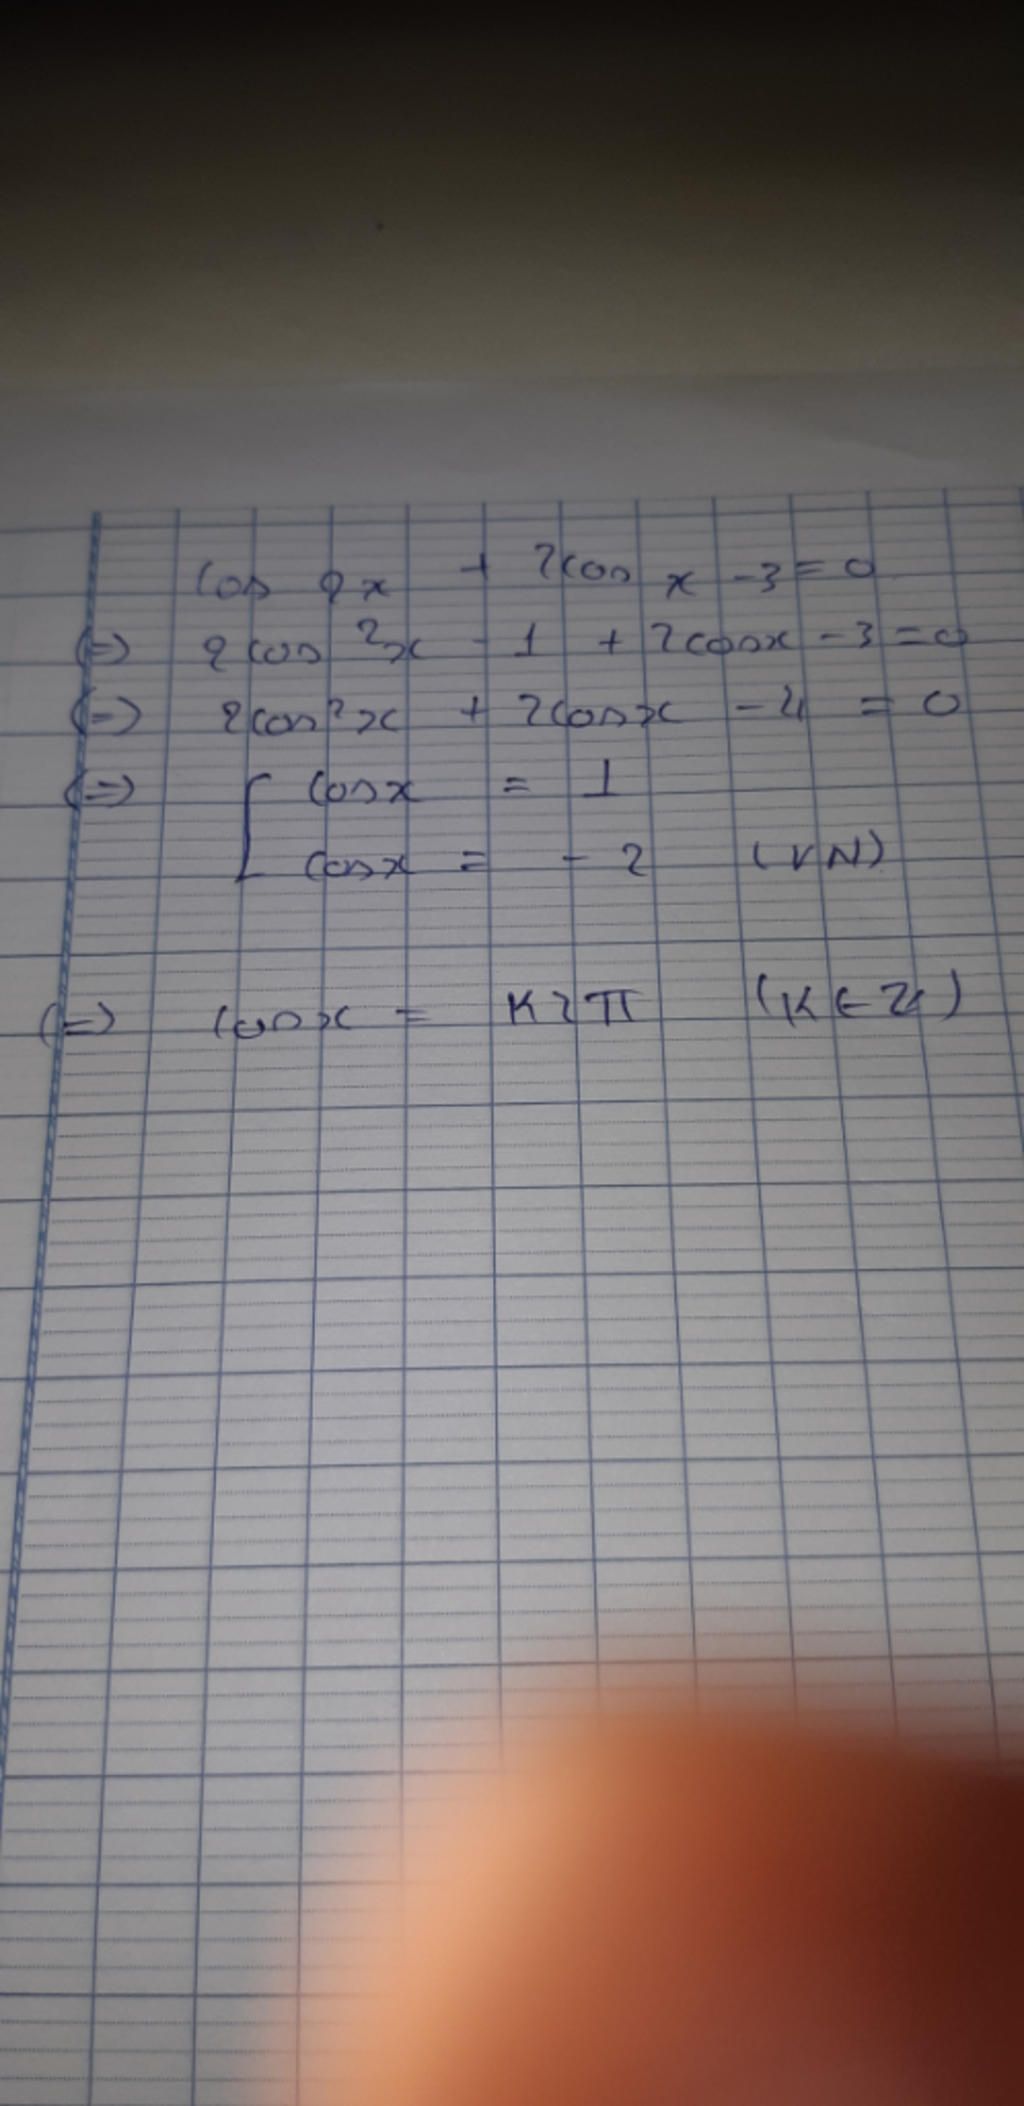 cos 2x + 2cos x - 3 = 0
(=) 2cos²x - 1 + 2cosx - 3 = 0
(=) 2cos²x + 2cosx - 4 = 0
(=) [ cosx = 1
cosx = - 2 (VN)
(=) cosx = K2π (K ∈ Z)